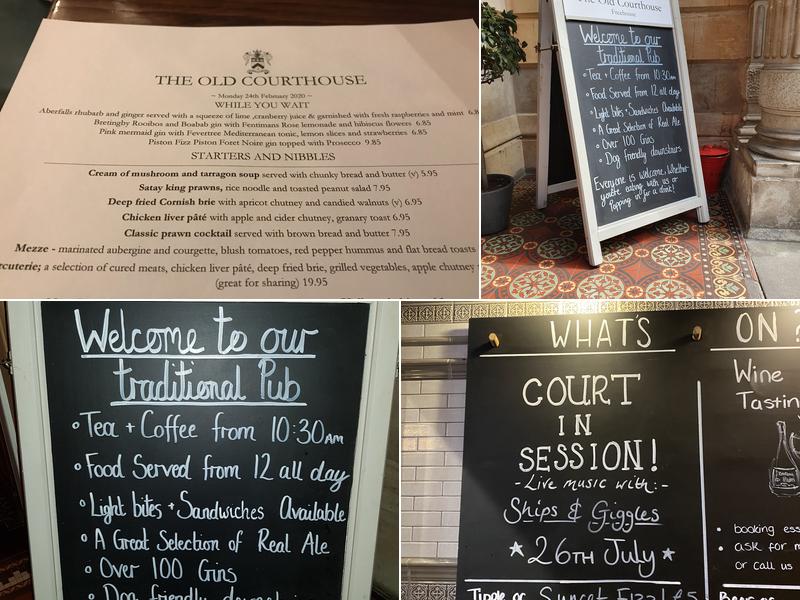 THE OLD COURTHOUSE
~ Monday 24th February 2020 ~
WHILE YOU WAIT
Aberfalls rhubarb and ginger served with a squeeze of lime ,cranberry juice & garnished with fresh raspberries and mint 6.8
Bretingby Rooibos and Boabab gin with Fentimans Rose lemonade and hibiscus flowers 6.85
Pink mermaid gin with Fevertree Mediterranean tonic, lemon slices and strawberries 6.85
Piston Fizz Piston Foret Noire gin topped with Prosecco 9.85
STARTERS AND NIBBLES
Cream of mushroom and tarragon soup served with chunky bread and butter (v) 5.95
Satay king prawns, rice noodle and toasted peanut salad 7.95
Deep fried Cornish brie with apricot chutney and candied walnuts (v) 6.95
Chicken liver pâté with apple and cider chutney, granary toast 6.95
Classic prawn cocktail served with brown bread and butter 7.95
Mezze - marinated aubergine and courgette, blush tomatoes, red pepper hummus and flat bread toasts
rcuterie; a selection of cured meats, chicken liver pâté, deep fried brie, grilled vegetables, apple chutney
(great for sharing) 19.95
The Old Courthouse
Freehouse
Welcome to our
traditional Pub
• Tea + Coffee from 10:30am
• Food Served from 12 all day
• Light bites + Sandwiches Available
• A Great Selection of Real Ale
• Over 100 Gins
• Dog friendly downstairs
Everyone is welcome, Whether
you're eating with us or
Popping in for a drink!
Welcome to our
traditional Pub
• Tea + Coffee from 10:30AM
• Food Served from 12 all day
• Light bites + Sandwiches Available
• A Great Selection of Real Ale
• Over 100 Gins
• Dog friendly
WHATS
COURT
IN
SESSION!
- Live music with:-
Ships & Giggles
★ 26TH July ★
Sunset Fizz! £5
ON ?
Wine
Tastin
• booking ess
• ask for m
or call us